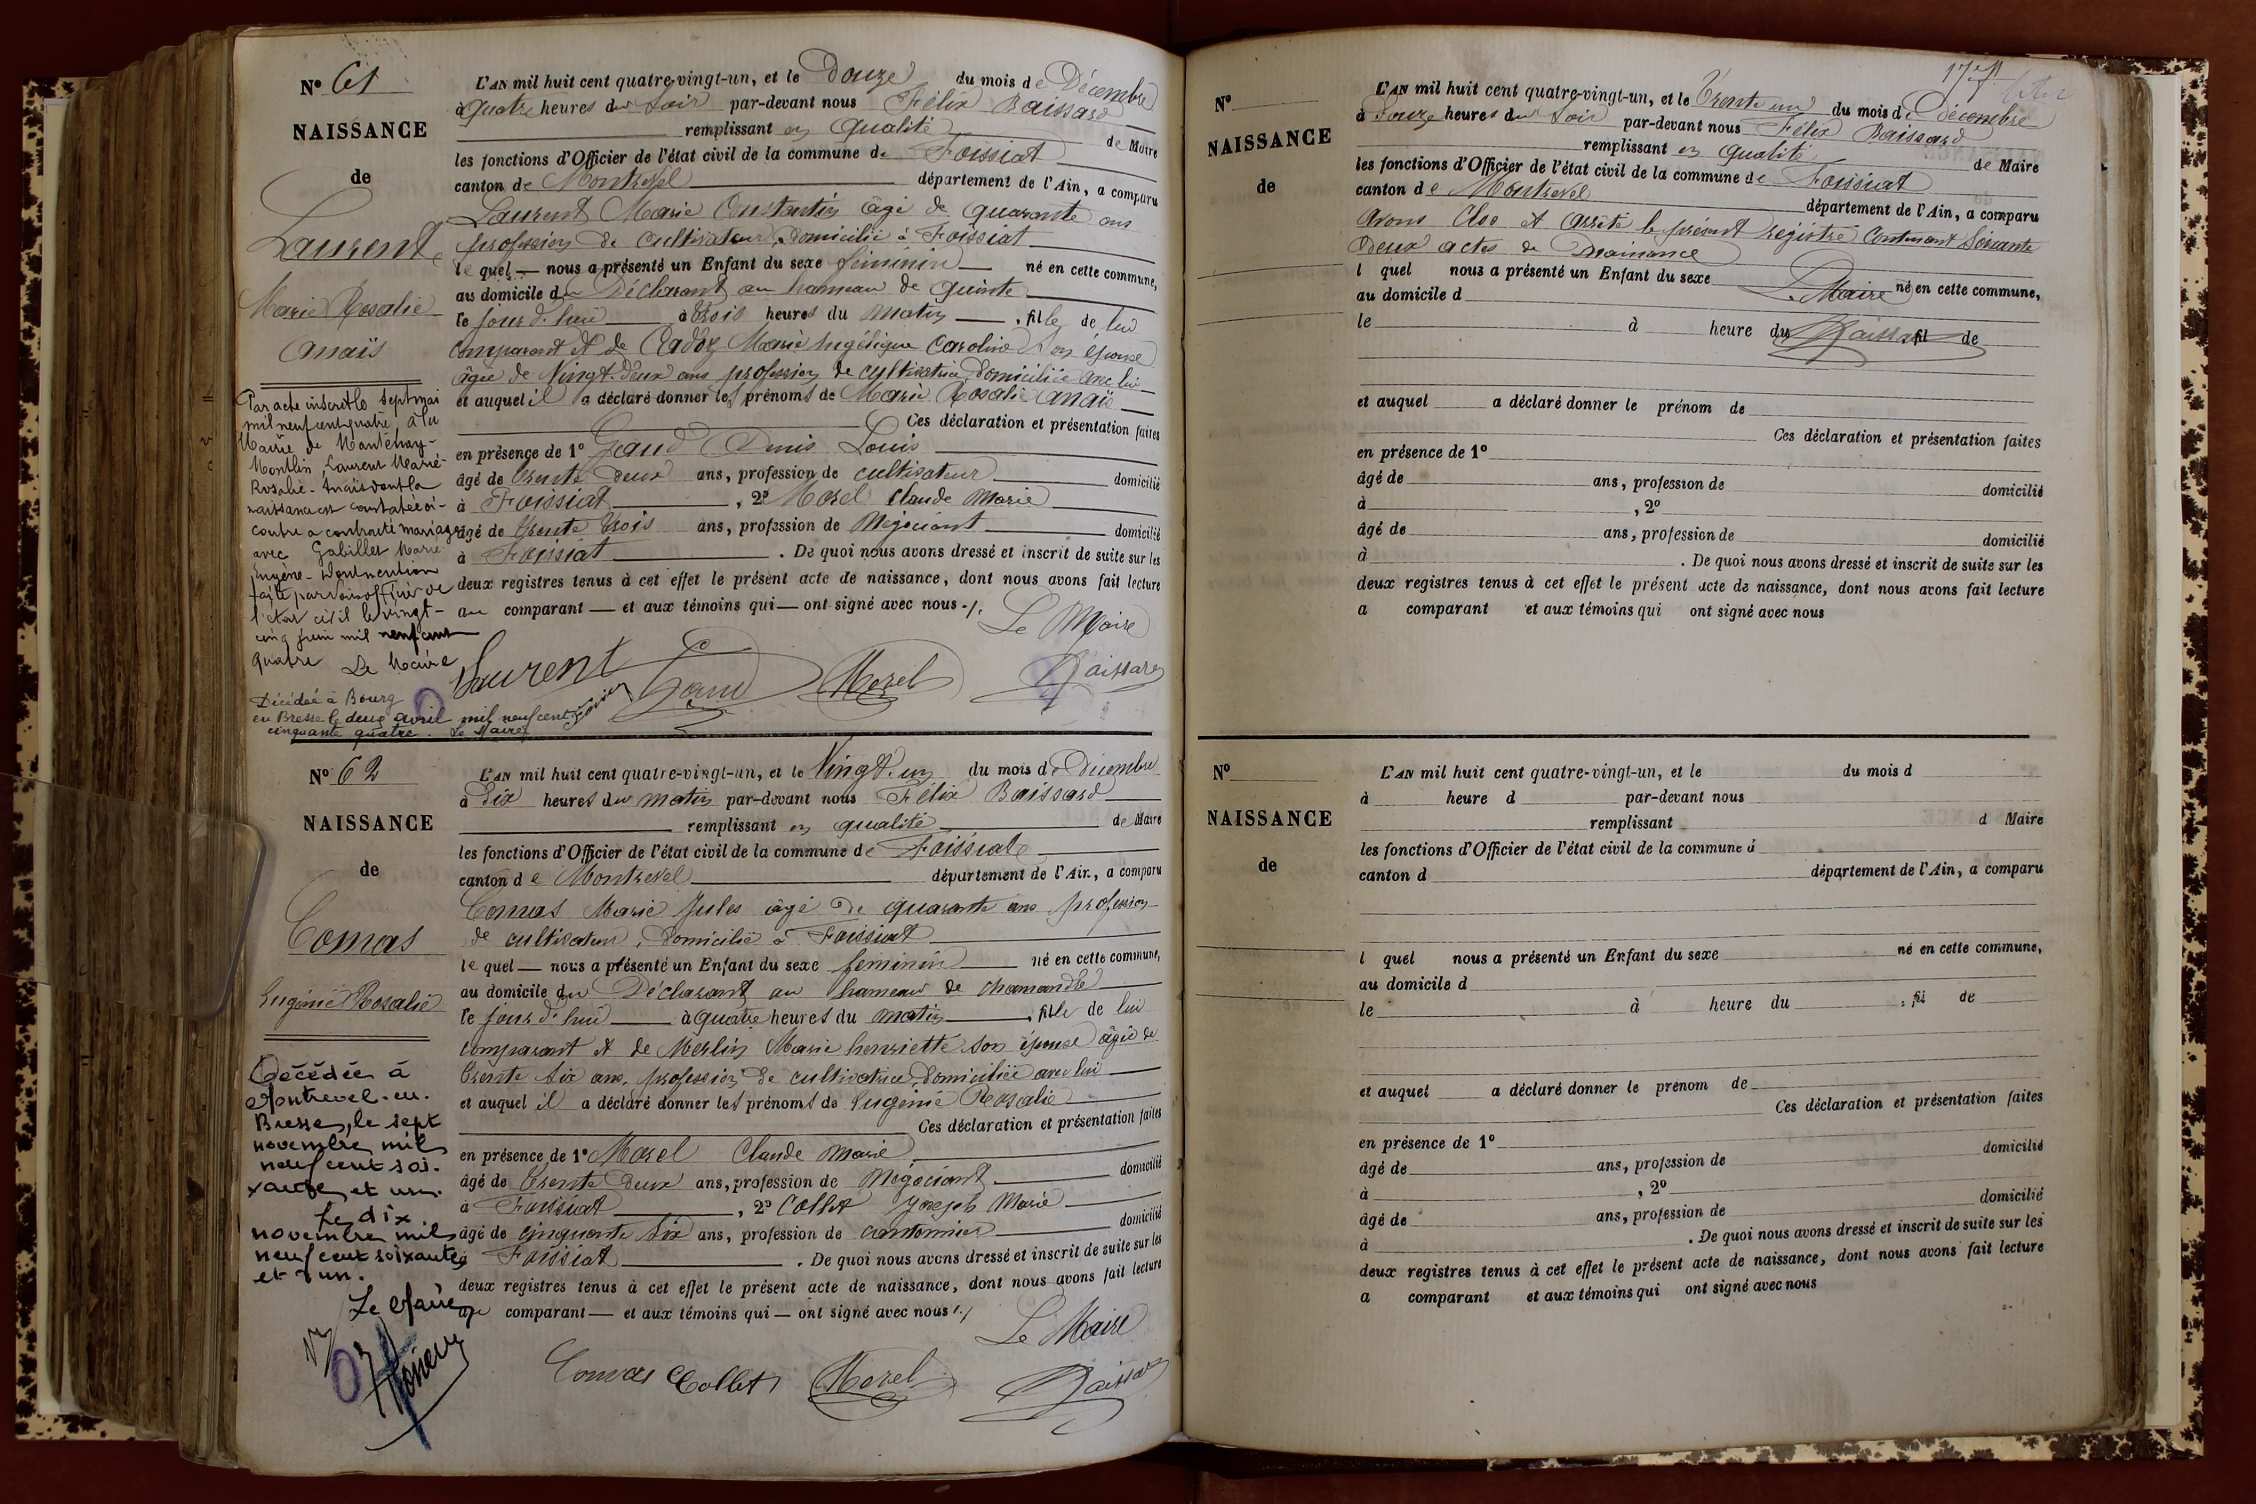 N° 61
NAISSANCE
de
Laurent
Marie Rosalie
Anaïs
Par acte inscrit le sept mai
mil neuf cent quatre à la
Mairie de Mantenay-
Montlin, Laurent Marie-
Rosalie-Anaïs dont la
naissance est constatée ci-
contre a contracté mariage
avec Gabillet Marie
Eugène - Dont mention
faite par nous officier de
l'état civil le vingt-
cinq juin mil neuf cent
quatre Le Maire
Décédée à Bourg
en Bresse le deux avril mil neuf cent
cinquante quatre. Le Maire
L'AN mil huit cent quatre-vingt-un, et le Douze du mois de Décembre
à quatre heures du Soir par-devant nous Félix Baissard
remplissant en qualité de Maire
les fonctions d'Officier de l'état civil de la commune de Foissiat
canton de Montrevel département de l'Ain, a comparu
Laurent Marie Constantin âgé de quarante ans
profession de cultivateur, domicilié à Foissiat
lequel nous a présenté un Enfant du sexe féminin né en cette commune,
au domicile du Déclarant au hameau de
le jour d'hui à trois heures du matin, fille de lui
comparant et de Marie Angélique Caroline son épouse
âgée de Vingt-deux ans profession de cultivatrice, domiciliée avec lui
et auquel il a déclaré donner les prénoms de Marie Rosalie Anaïs
Ces déclaration et présentation faites
en présence de 1° Denis Louis
âgé de trente deux ans, profession de cultivateur domicilié
à Foissiat, 2° Morel Claude Marie
âgé de trente trois ans, profession de Négociant domicilié
à Foissiat. De quoi nous avons dressé et inscrit de suite sur les
deux registres tenus à cet effet le présent acte de naissance, dont nous avons fait lecture
au comparant et aux témoins qui ont signé avec nous ./.
Le Maire
Laurent Morel Baissard
N° 62
NAISSANCE
de
Comas
Eugénie Rosalie
Décédée à
Montrevel-en-
Bresse, le sept
novembre mil
neuf cent soi-
xante et un.
Le dix
novembre mil
neuf cent soixante
et un.
Le Maire
L'AN mil huit cent quatre-vingt-un, et le Vingt-un du mois de Décembre
à Dix heures du matin par-devant nous Félix Baissard
remplissant en qualité de Maire
les fonctions d'Officier de l'état civil de la commune de Foissiat
canton de Montrevel département de l'Ain, a comparu
Comas Marie Jules âgé de quarante ans profession
de cultivateur, domicilié à Foissiat
lequel nous a présenté un Enfant du sexe féminin né en cette commune,
au domicile du Déclarant au hameau de Chamandé
le jour d'hui à quatre heures du matin, fille de lui
comparant et de Merlin Marie henriette son épouse âgée de
trente six ans, profession de cultivatrice, domiciliée avec lui
et auquel il a déclaré donner les prénoms de Eugénie Rosalie
Ces déclaration et présentation faites
en présence de 1° Morel Claude Marie
âgé de trente deux ans, profession de Négociant domicilié
à Foissiat, 2° Collet Joseph Marie
âgé de cinquante six ans, profession de cantonnier domicilié
à Foissiat. De quoi nous avons dressé et inscrit de suite sur les
deux registres tenus à cet effet le présent acte de naissance, dont nous avons fait lecture
au comparant et aux témoins qui ont signé avec nous ./.
Le Maire
Comas Collet Morel Baissard
N°
NAISSANCE
de
L'AN mil huit cent quatre-vingt-un, et le Trente un du mois de décembre
à Douze heures du Soir par-devant nous Félix Baissard
remplissant en qualité de Maire
les fonctions d'Officier de l'état civil de la commune de Foissiat
canton de Montrevel département de l'Ain, a comparu
Avons Clos et arrêté le présent registre Contenant Soixante
Deux actes de Naissance
l quel nous a présenté un Enfant du sexe né en cette commune,
au domicile d
Le Maire
le à heure du fil de
Baissard
et auquel a déclaré donner le prénom de
Ces déclaration et présentation faites
en présence de 1°
âgé de ans, profession de domicilié
à , 2°
âgé de ans, profession de domicilié
à . De quoi nous avons dressé et inscrit de suite sur les
deux registres tenus à cet effet le présent acte de naissance, dont nous avons fait lecture
a comparant et aux témoins qui ont signé avec nous
N°
NAISSANCE
de
L'AN mil huit cent quatre-vingt-un, et le du mois d
à heure d par-devant nous
remplissant d Maire
les fonctions d'Officier de l'état civil de la commune d
canton d département de l'Ain, a comparu
l quel nous a présenté un Enfant du sexe né en cette commune,
au domicile d
le à heure du , fil de
et auquel a déclaré donner le prénom de
Ces déclaration et présentation faites
en présence de 1°
âgé de ans, profession de domicilié
à , 2°
âgé de ans, profession de domicilié
à . De quoi nous avons dressé et inscrit de suite sur les
deux registres tenus à cet effet le présent acte de naissance, dont nous avons fait lecture
a comparant et aux témoins qui ont signé avec nous